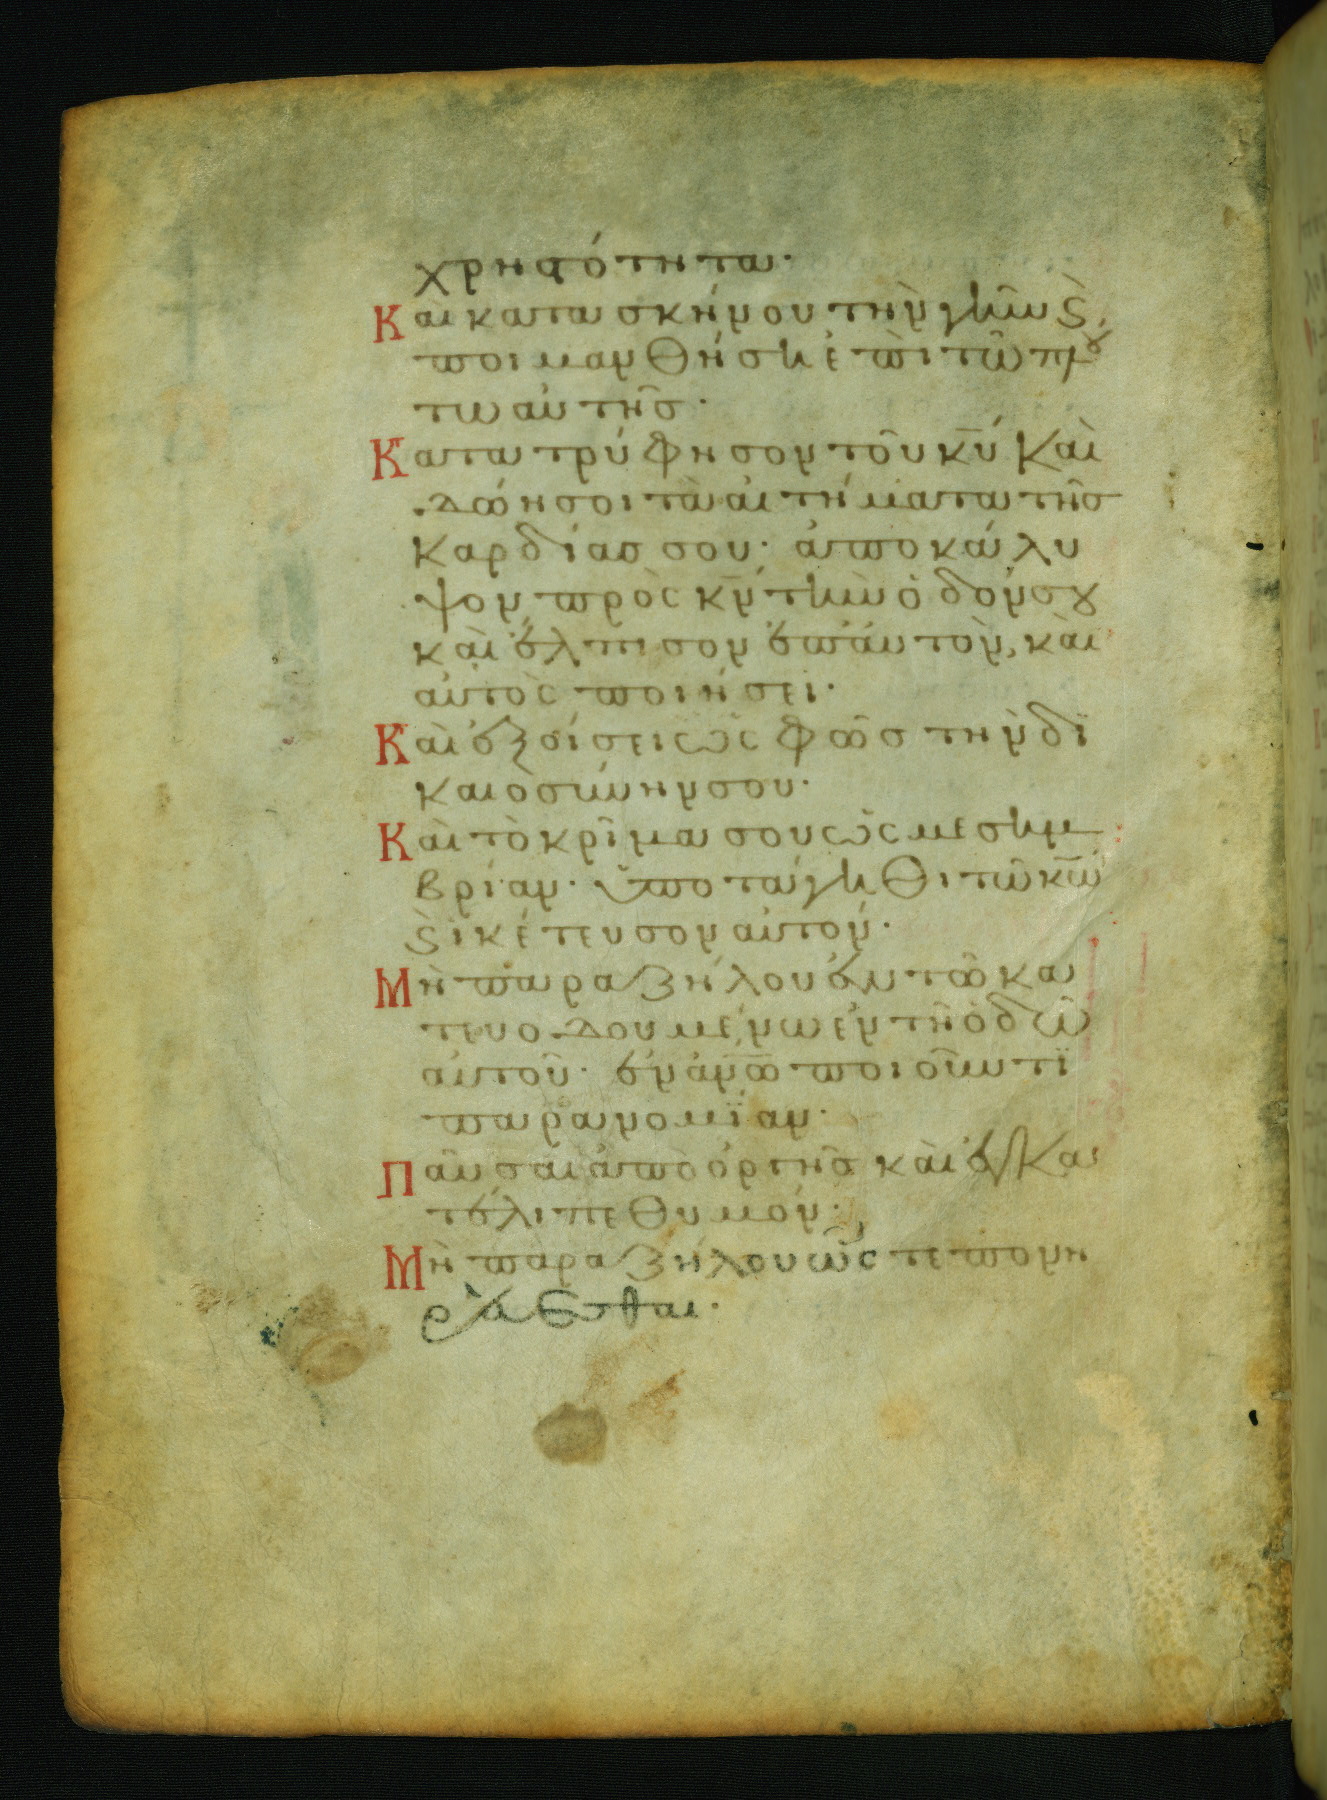 χρηστότητα·
Καὶ κατασκήνου τὴν γῆν ϛ̀
ποιμανθήση ἐπὶ τῶ πλού
τω αὐτῆσ·
Κατατρύφησον τοῦ κ̅υ̅ Καὶ
δώη σοι τὰ αἰτήματα τῆσ
Καρδίασ σου· ἀποκάλυ
ψον πρὸς κ̅ν̅ τὴν ὁδόν σου
καὶ ἔλπισον ἐπ' αὐτὸν, καὶ
αὐτὸς ποιήσει·
Καὶ ἐξοίσει ὡς φῶσ τὴν δι
Καιοσύνην σου·
Καὶ τὸ κρῖμα σου ὡς μεσημ
βρίαν· ὑποτάγηθι τῶ κ̅ω̅
ϛ̀ ἱκέτευσον αὐτόν·
Μὴ παραζήλου ἐν τῶ κα
τευοδουμένω ἐν τῆ ὁδῶ
αὐτοῦ· ἐν ἀν̅ω̅ ποιοῦντι
παρανομΐαν·
Παῦσαι ἀπὸ ὀργῆσ καὶ ἐγκα
τέλιπε θυμόν·
Μὴ παραζήλου ὥς τε πονη
ρεύεσθαι·